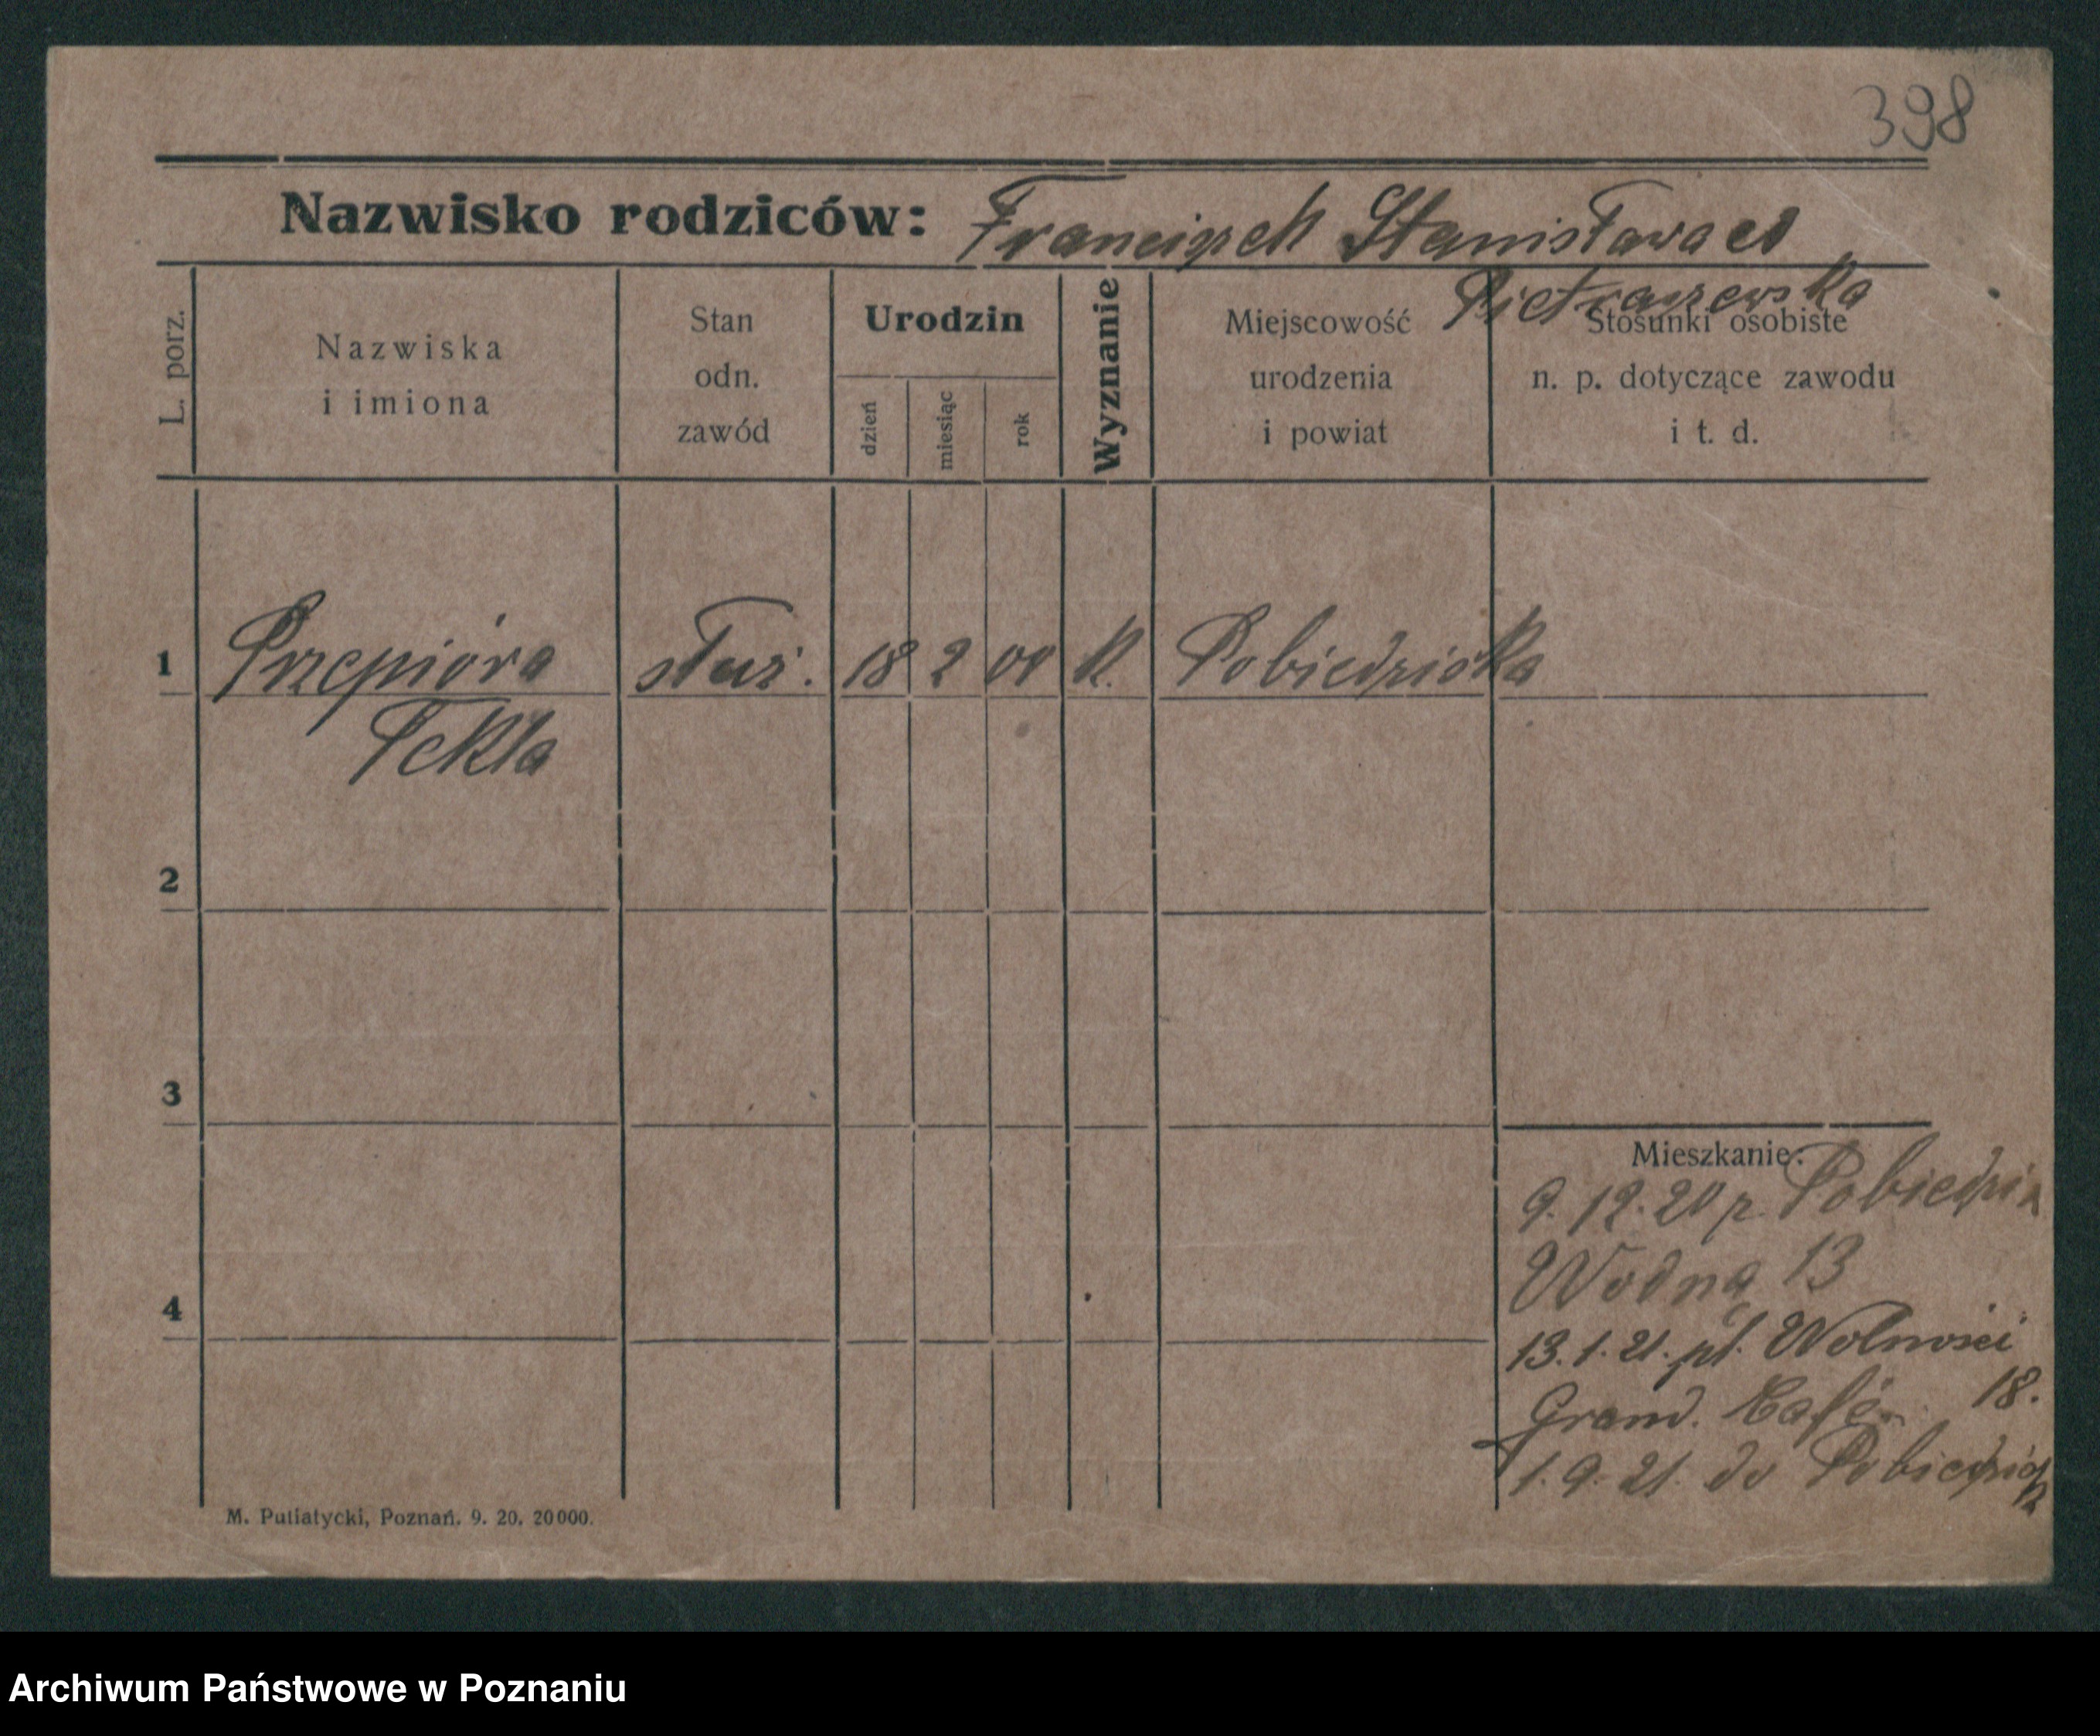 398
Nazwisko rodziców: Franciszek Stanisława
Pietraszewska
L. porz.
Nazwiska
i imiona
Stan
odn.
zawód
Urodzin
dzień
miesiąc
rok
Wyznanie
Miejscowość
urodzenia
i powiat
Stosunki osobiste
n. p. dotyczące zawodu
i t. d.
1 Przepióra służ. 18 2 00 K. Pobiedziska
Tekla
2
3
4
Mieszkanie:
9. 12. 20 z Pobiedzisk
Wodna 13
13. 1. 21. pl. Wolności
18.
Grand. Café
1. 9. 21. do Pobiedzisk
M. Putiatycki, Poznań. 9. 20. 20000.
Archiwum Państwowe w Poznaniu